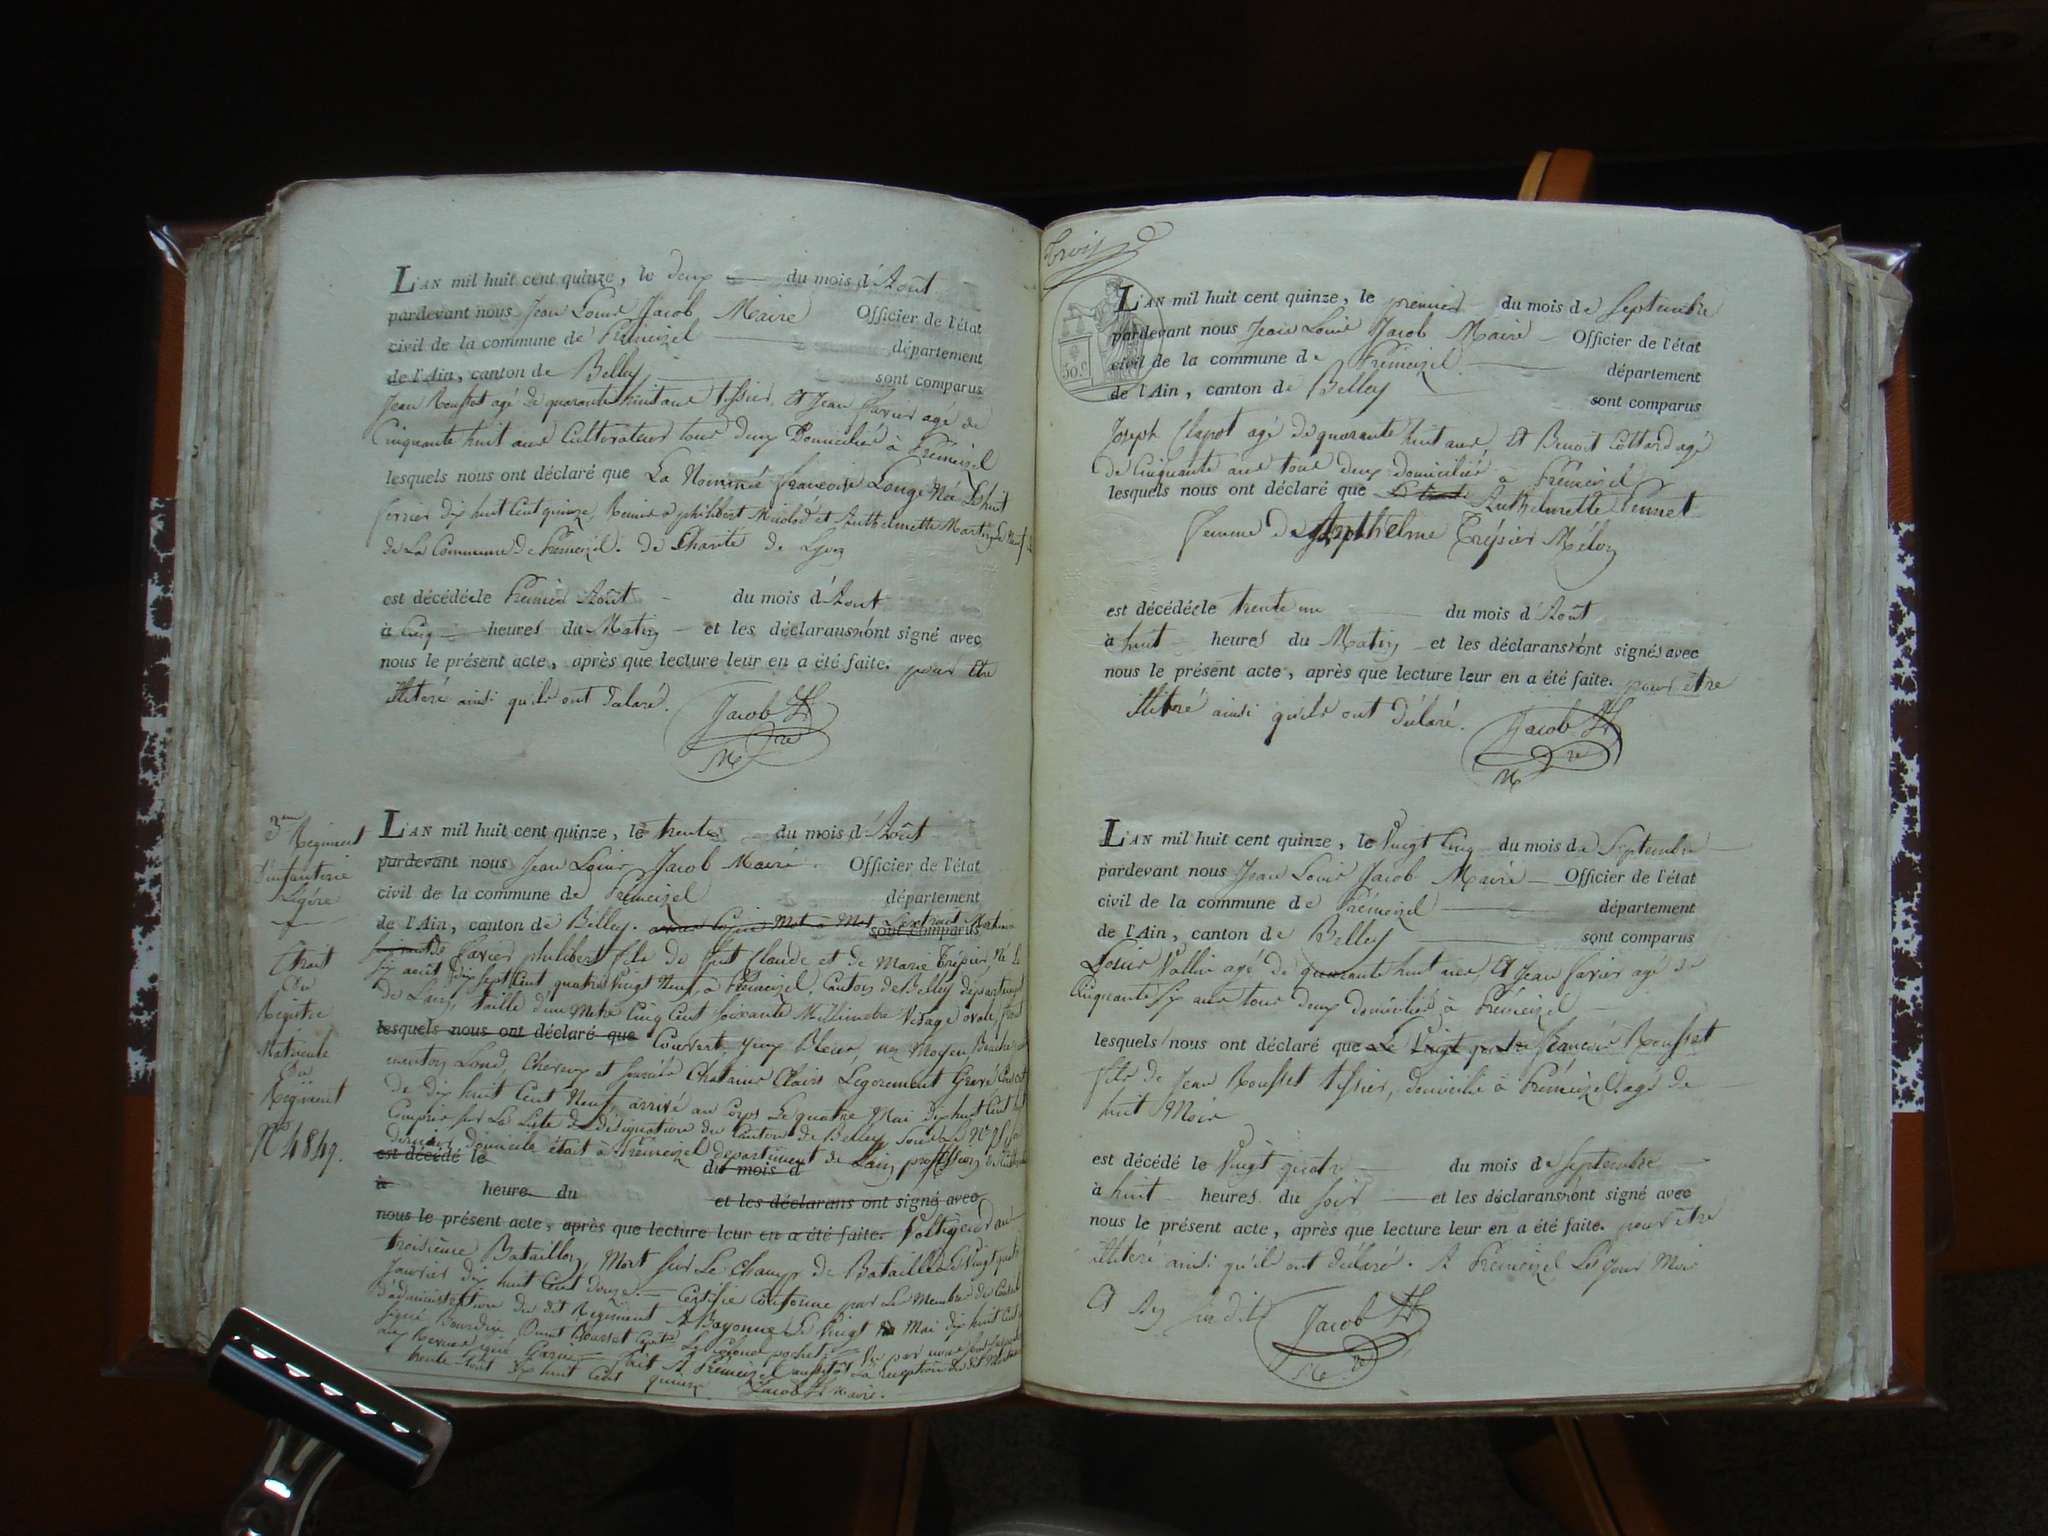 L'AN mil huit cent quinze, le deux du mois d'Août
pardevant nous Jean Louis Jacob Maire Officier de l'état
civil de la commune de Prémeizel département
de l'Ain, canton de Belley sont comparus
Jean Rousset agé de quarante huit ans tissier, et Jean Favier agé de
Cinquante huit ans Cultivateur tous deux Domiciliés à Prémeizel
lesquels nous ont déclaré que La Nommé francoise Longe Née Le huit
fevrier dix huit Cent quinze, Remise a philibert et Anthelmette Martin
de La Commune de Prémeizel. de Charité de Lyon
est décédé le Premier Août du mois d'Août
à Cinq heures du Matin et les déclarans n'ont signé avec
nous le présent acte, après que lecture leur en a été faite. pour être
illiteré ainsi qu'ils ont déclaré. Jacob
Mre
3eme Régiment
d'infanterie
Légère
Extrait
Du
Régistre
Matricule
Du
Régiment
No 4849.
L'AN mil huit cent quinze, le trente du mois d'Août
pardevant nous Jean Louis Jacob Maire Officier de l'état
civil de la commune de Prémeizel département
de l'Ain, canton de Belley. avons Copié Mot à Mot L'extrait Mortuaire
sont comparus
Favier philibert fils de feut Claude et de Marie Trépier, Né Le
Six août Dix Sept Cent quatre Vingt Neuf, à Prémeizel, Canton de Belley département
de Lain, taille d'un Metre Cinq Cent Soixante Millimetre Visage ovale, front
lesquels nous ont déclaré que Couvert, yeux Bleus, nez Moyen, Bouche
menton Rond, Cheveux et Sourcils Chatains Clairs Legerement Gravé
de dix huit Cent Neuf arrivé au Corps Le quatre Mai Dix huit Cent
Compris sur La Liste de désignation du Canton de Belley, Sous Le No
dernier domicile était à Prémeizel département de Lain, profession de
est décédé le du mois d
à heure du et les déclarans ont signé avec
nous le présent acte, après que lecture leur en a été faite. Voltigeur au
troisième Bataillon, Mort sur Le Champ de Bataille Le Vingt quatre
Janvier dix huit Cent douze. Certifié Conforme par Les Membres du Conseil
d'administration du dit Régiment A Bayonne Le Vingt Mai dix huit Cent
signé Le Colonel Vu par nous
aux Revues signé fait A Prémeizel aussitôt La reception
trente Août dix huit Cent quinze Jacob Maire.
Trois
50.c
L'AN mil huit cent quinze, le premier du mois de Septembre
pardevant nous Jean Louis Jacob Maire Officier de l'état
civil de la commune de Prémeizel département
de l'Ain, canton de Belley sont comparus
Joseph Clapot agé de quarante huit ans, et Benoit Cottard agé
de Cinquante ans tous deux domiciliés à Prémeizel
lesquels nous ont déclaré que Anthelmette Pennet
femme de Anthelme Trépier Mélon
est décédé le trente un du mois d'Août
à huit heures du Matin et les déclarans n'ont signés avec
nous le présent acte, après que lecture leur en a été faite. pour être
illiteré ainsi qu'ils ont déclaré. Jacob
Mre
L'AN mil huit cent quinze, le Vingt Cinq du mois de Septembre
pardevant nous Jean Louis Jacob Maire Officier de l'état
civil de la commune de Prémeizel département
de l'Ain, canton de Belley sont comparus
Louis Vallin agé de quarante huit ans, et Jean Favier agé de
Cinquante Six ans tous deux domiciliés à Prémeizel
lesquels nous ont déclaré que Le Vingt quatre francois Rousset
fils de Jean Rousset tissier, domicilié à Prémeizel agé de
huit Mois
est décédé le Vingt quatre du mois de Septembre
à huit heures du soir et les déclarans n'ont signé avec
nous le présent acte, après que lecture leur en a été faite. pour être
illiteré ainsi qu'ils ont déclaré. A Prémeizel Les Jour Mois
et An sus dit Jacob
Mre